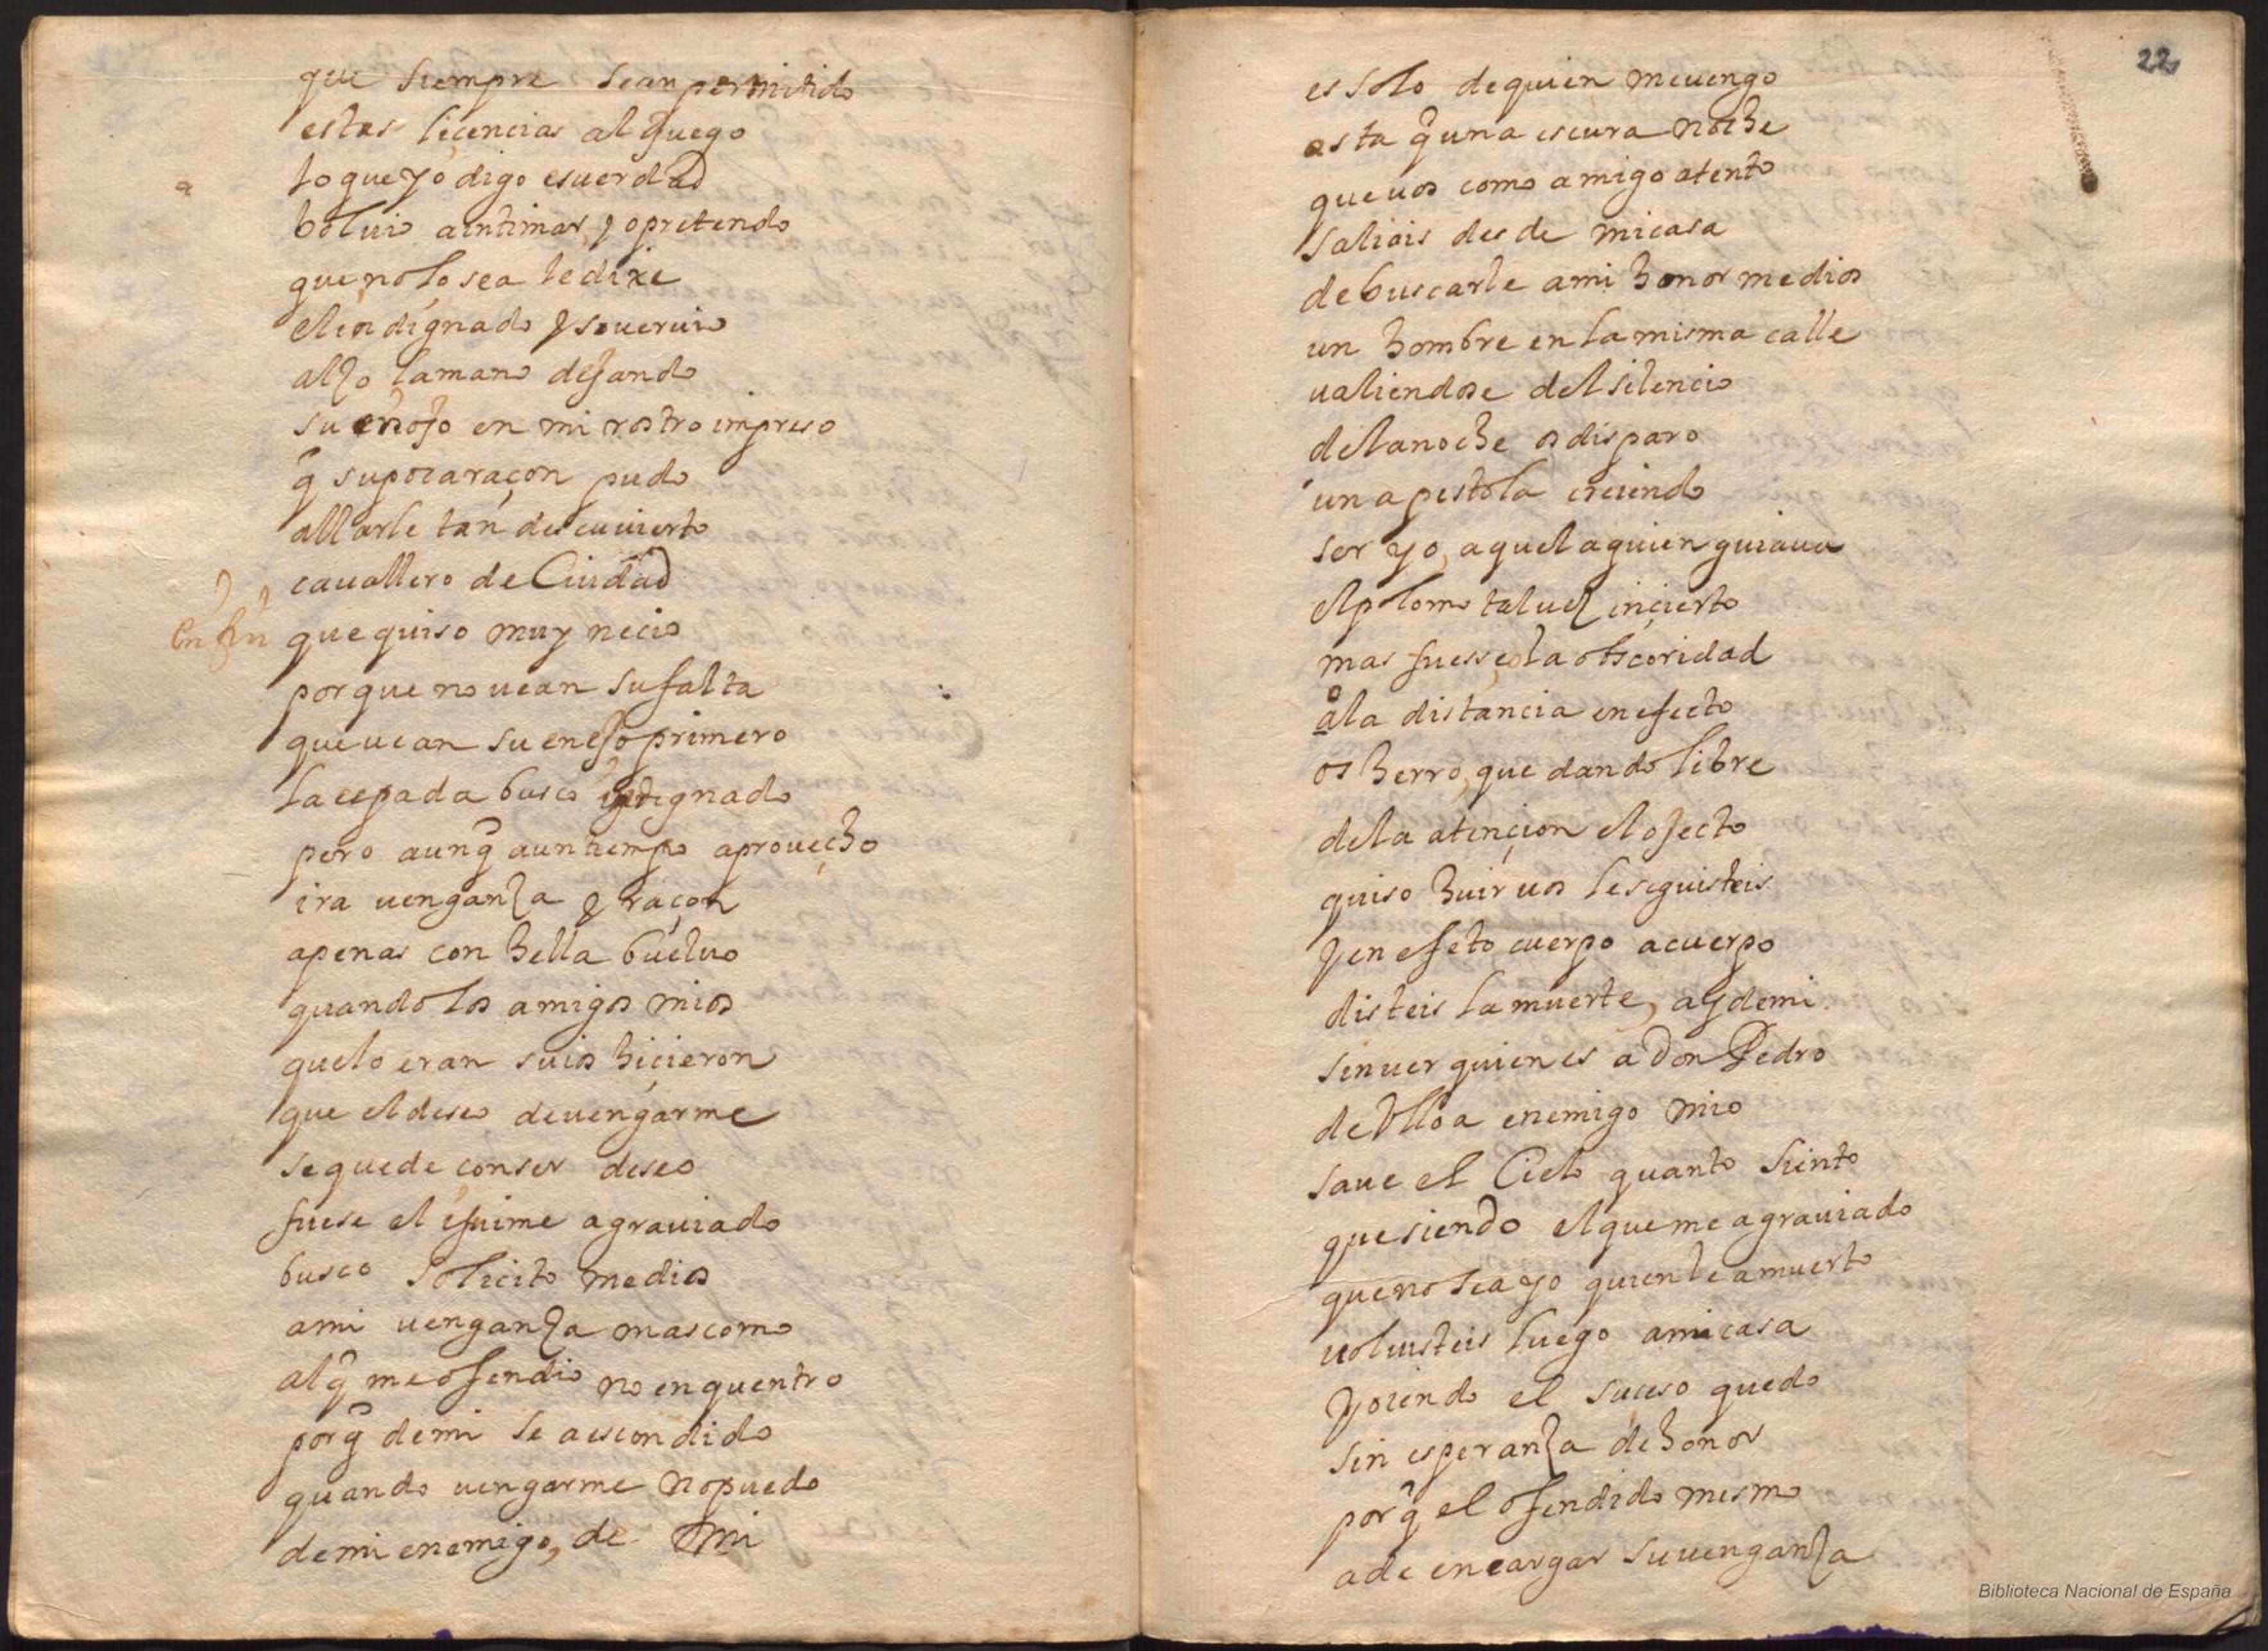 que siempre sean permitido
estas licencias al Juego
lo que yo digo esuerdad
boluio aintimar, yopretendo
quenolosea ledixe
elindignado y souervio
alço lamano dejando
su enojo en mi rostro impreso
q̃ supocaraçon pudo
allarle tan descuuierto
cauallero de Ciudad
en fin que quiso muy necio
porque no uean sufalta
queuean su enojo primero
la espada busco indignado
pero aunq̃ auntiempo aprouecho
ira uengança y raçon
apenas con hella buelvo
quando los amigos mios
quelo eran suios hicieron
que eldeseo deuengarme
sequede conser deseo
fuese el i fuime agrauiado
busco solicito medios
ami uengança mascomo
alq̃ meofendio no enquentro
porq̃ demi se aescondido
quando uengarme nopuedo
demi enemigo, de mi
22
essolo dequien meuengo
asta q̃ una escura noche
queuos como amigo atento
saliois desde micasa
debuscarle ami honor medios
un hombre en lamisma calle
ualiendose delsilencio
delanoche os disparo
una pistola creiendo
ser yo, aquelaquien guiaua
elplomo taluez incierto
mas fuesseola obscoridad
ola distancia en efecto
os herro, que dando libre
dela atençion elojecto
quiso huir uos leseguisteis
y en efeto cuerpo acuerpo
disteis lamuerte, ay demi
sinuer quien es a Don Pedro
de Vlloa enemigo mio
saue el Cielo quanto siento
que siendo elqueme agrauiado
queno sea yo quienle amuerto
uoluisteis luego amicasa
yoiendo el suceso quedo
sin esperança dehonor
porq̃ el ofendido mesmo
ade encargar suuengança
Biblioteca Nacional de España